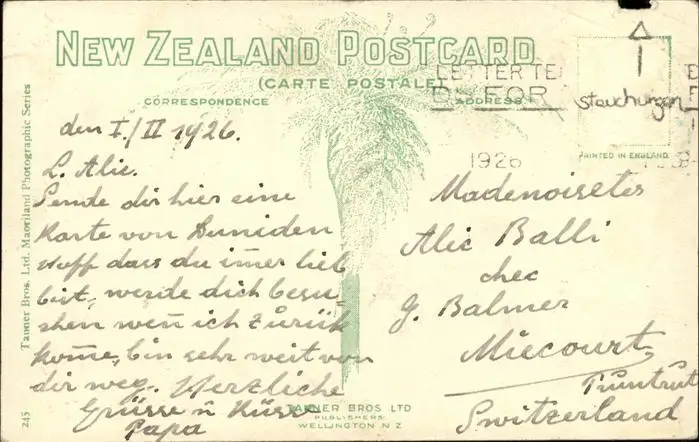 NEW ZEALAND POSTCARD
(CARTE POSTALE)
CORRESPONDENCE
ADDRESS
LETTER TE
DS FOR
1926
Stauchungen
PRINTED IN ENGLAND
den I./II 1926.
L. Alic.
Sende dir hier eine
Karte von Duniden
Hoff dass du imer lieb
bist, werde dich besu-
chen wen ich zurük
kome, bin sehr weit von
dir weg. Herzliche
Grüsse u Küsse
Papa
Madenoiseles
Alic Balli
chec
G. Balmer
Miecourt
Pruntrut
Switzerland
TANNER BROS LTD
PUBLISHERS
WELLINGTON N Z
Tanner Bros. Ltd. Maoriland Photographic Series
245